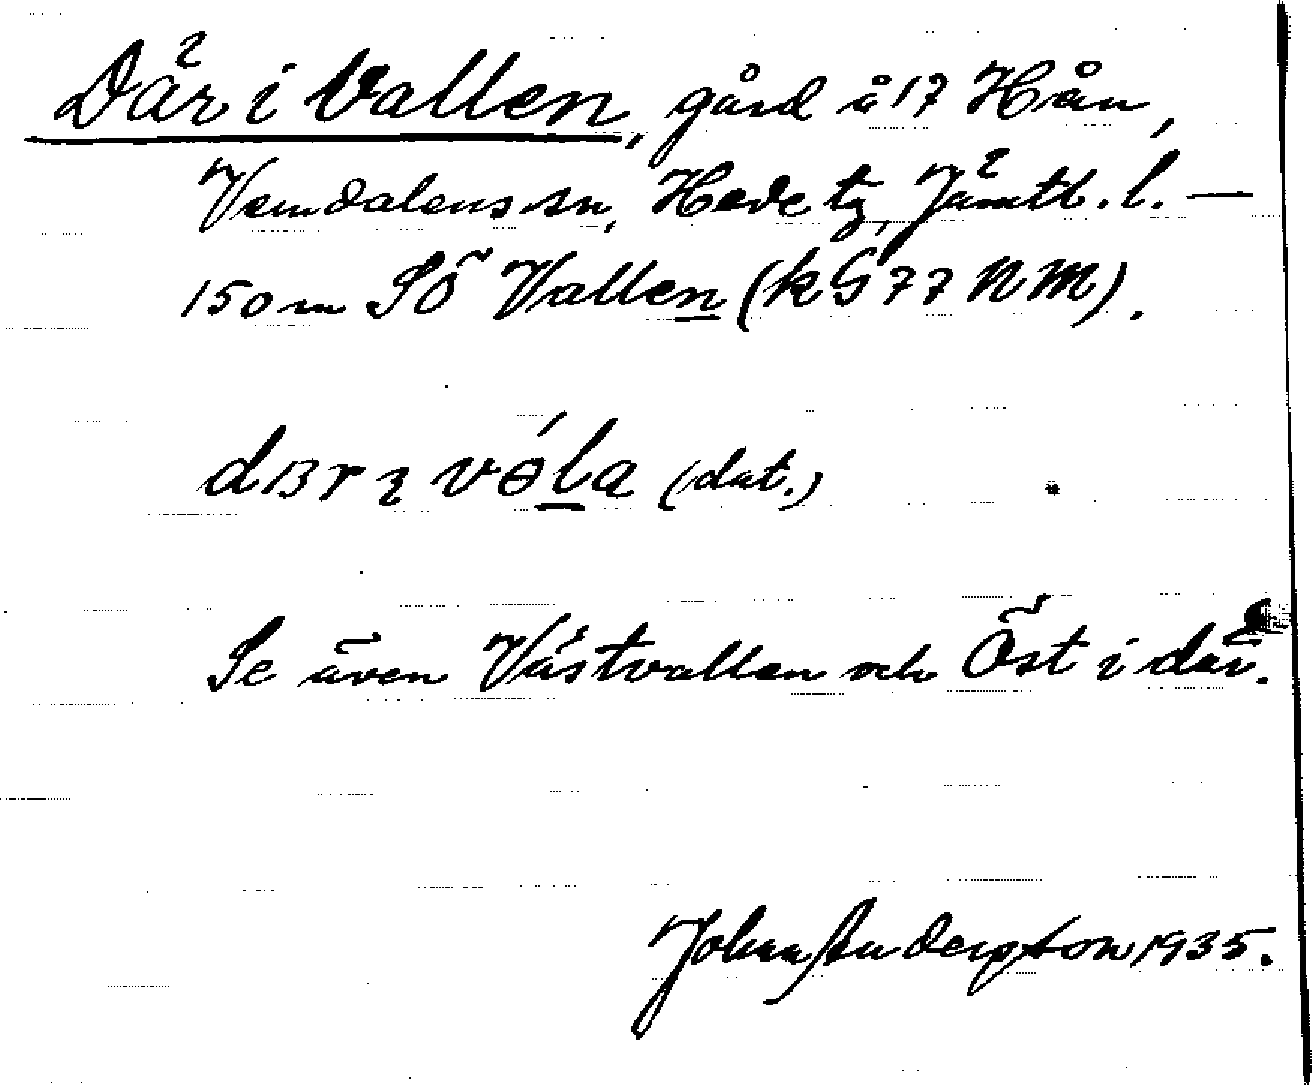 Där i Vallen, gård å 17 Hån,
Vemdalens sn, Hede tg, Jämtl. l. —
150 m SÖ Vallen (k G 77 NM).
(dat.)
Se även Västvallen och Öst i där.
Johan Anderson 1935.